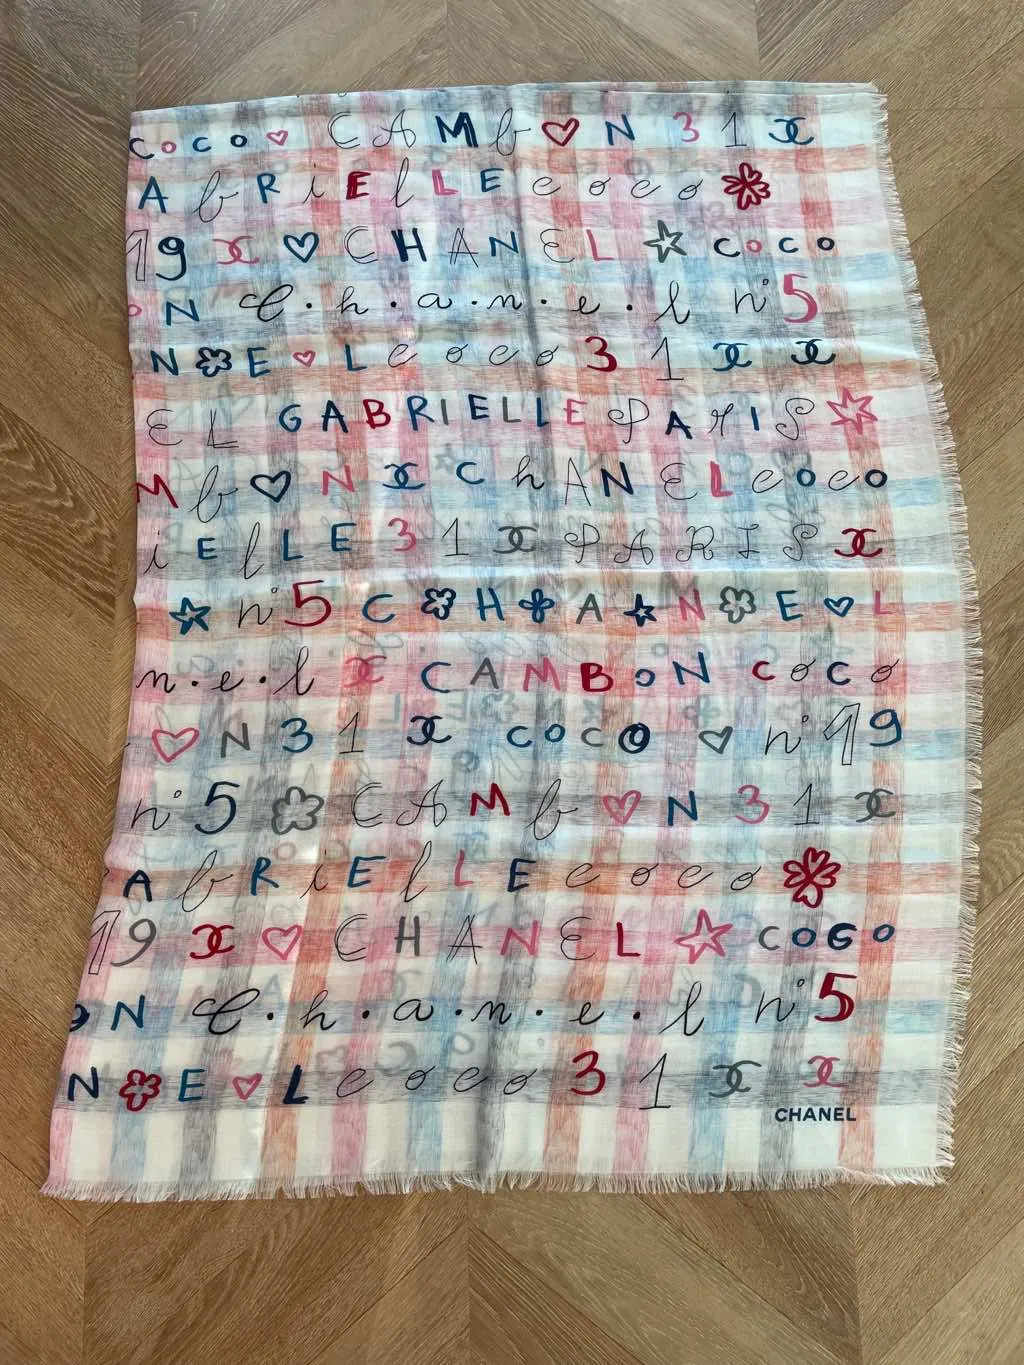 COCO CAMb N 31
AbRiElLE coco
19 CHANEL COCO
ON C.h.a.n.e.l n°5
N E L coco 31
EL GABRIELLE PARIS
Mb N ChANEL COCO
iElLE 31 PARIS
n°5 C H A N E L
n.e.l CAMBON COCO
N 31 COCO n°19
n°5 CAMb N 31
AbRiElLE coco
19 CHANEL COGO
ON C.h.a.n.e.l n°5
N E L coco 31
CHANEL